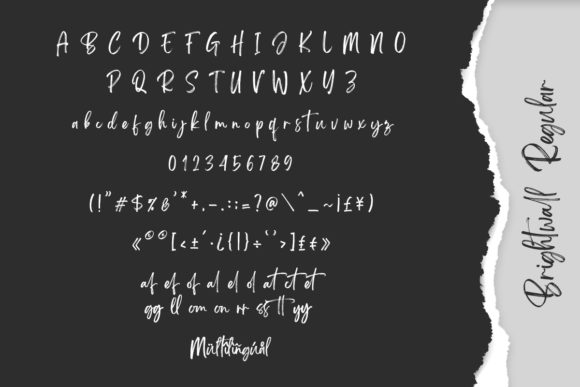 A B C D E F G H I J K L M N O
P Q R S T U V W X Y Z
a b c d e f g h i j k l m n o p q r s t u v w x y z
0 1 2 3 4 5 6 7 8 9
( ! " # $ % & ' * + , - . : ; = ? @ \ ^ _ ~ ¡ £ ¥ )
[ < ± ´ · ¿ { | } ÷ ‘ ’ > ] £ € »
af ef of al el ol at ct et
gg ll om on rr ss tt yy
Multilingual
Brightwall Regular